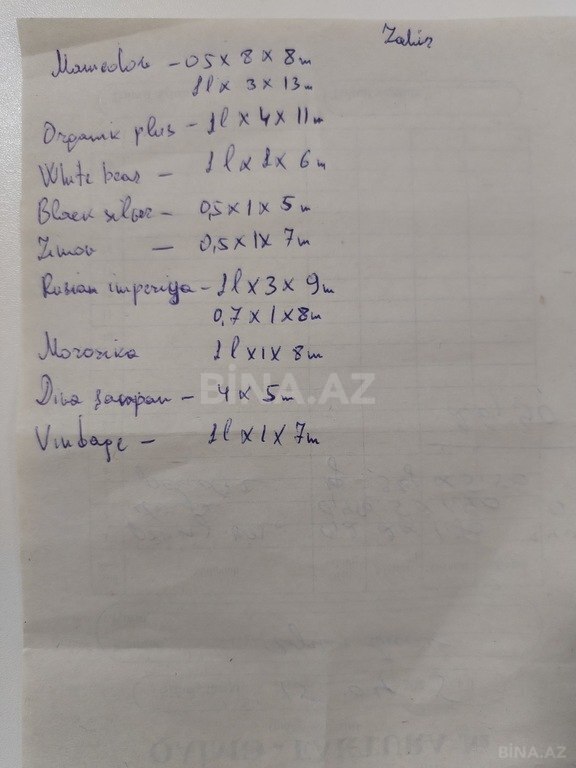 Zahir
Mamedow - 05 x 8 x 8m
1l x 3 x 13m
Organik plus - 1l x 4 x 11m
White bear - 1l x 1 x 6m
Black silver - 0,5 x 1 x 5m
Zimov - 0,5 x 1 x 7m
Rusian imperiya - 1l x 3 x 9m
0,7 x 1 x 8m
Moroska 1l x 1 x 8m
BİNA.AZ
Diva - 4 x 5m
Vintage - 1l x 1 x 7m
BİNA.AZ